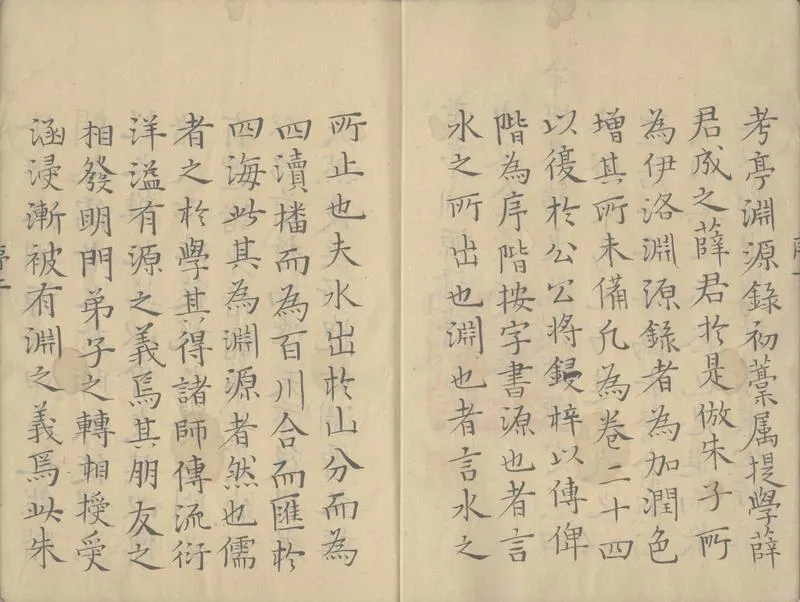 考亭淵源錄初藁属提學薛
君成之薛君扵是倣朱子所
為伊洛淵源錄者為加潤色
增其所未備凡為卷二十四
以復扵公公將鋟梓以傳俾
階為序階按字書源也者言
水之所出也淵也者言水之
所止也夫水出扵山分而為
四瀆播而為百川合而匯扵
四海此其為淵源者然也儒
者之扵學其得諸師傳流衍
洋溢有源之義焉其朋友之
相發明門弟子之轉相授受
涵浸漸被有淵之義焉此朱